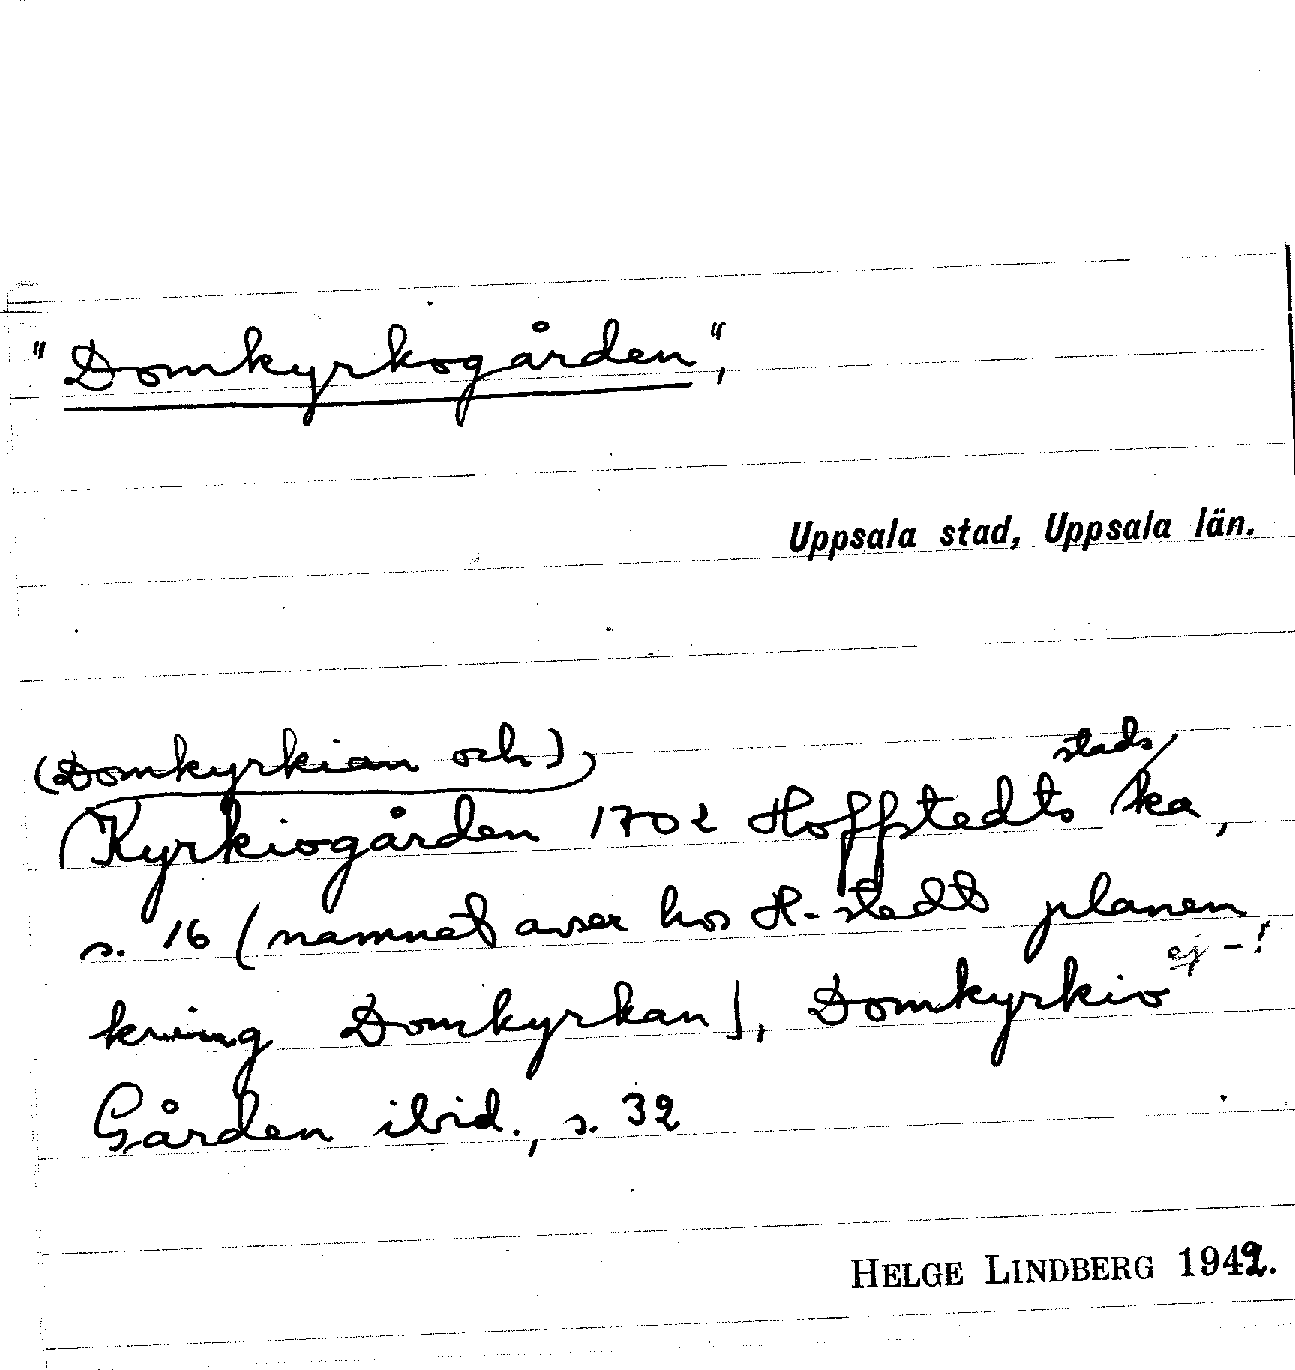 "Domkyrkogården",
Uppsala stad, Uppsala län.
(Domkyrkian och)
Kyrkiogården 1702 Hoffstedts stadska,
s. 16 (namnet avser hos H-stedt planen
kring Domkyrkan), Domkyrkio ej -!
Gården ibid., s. 32
HELGE LINDBERG 1942.